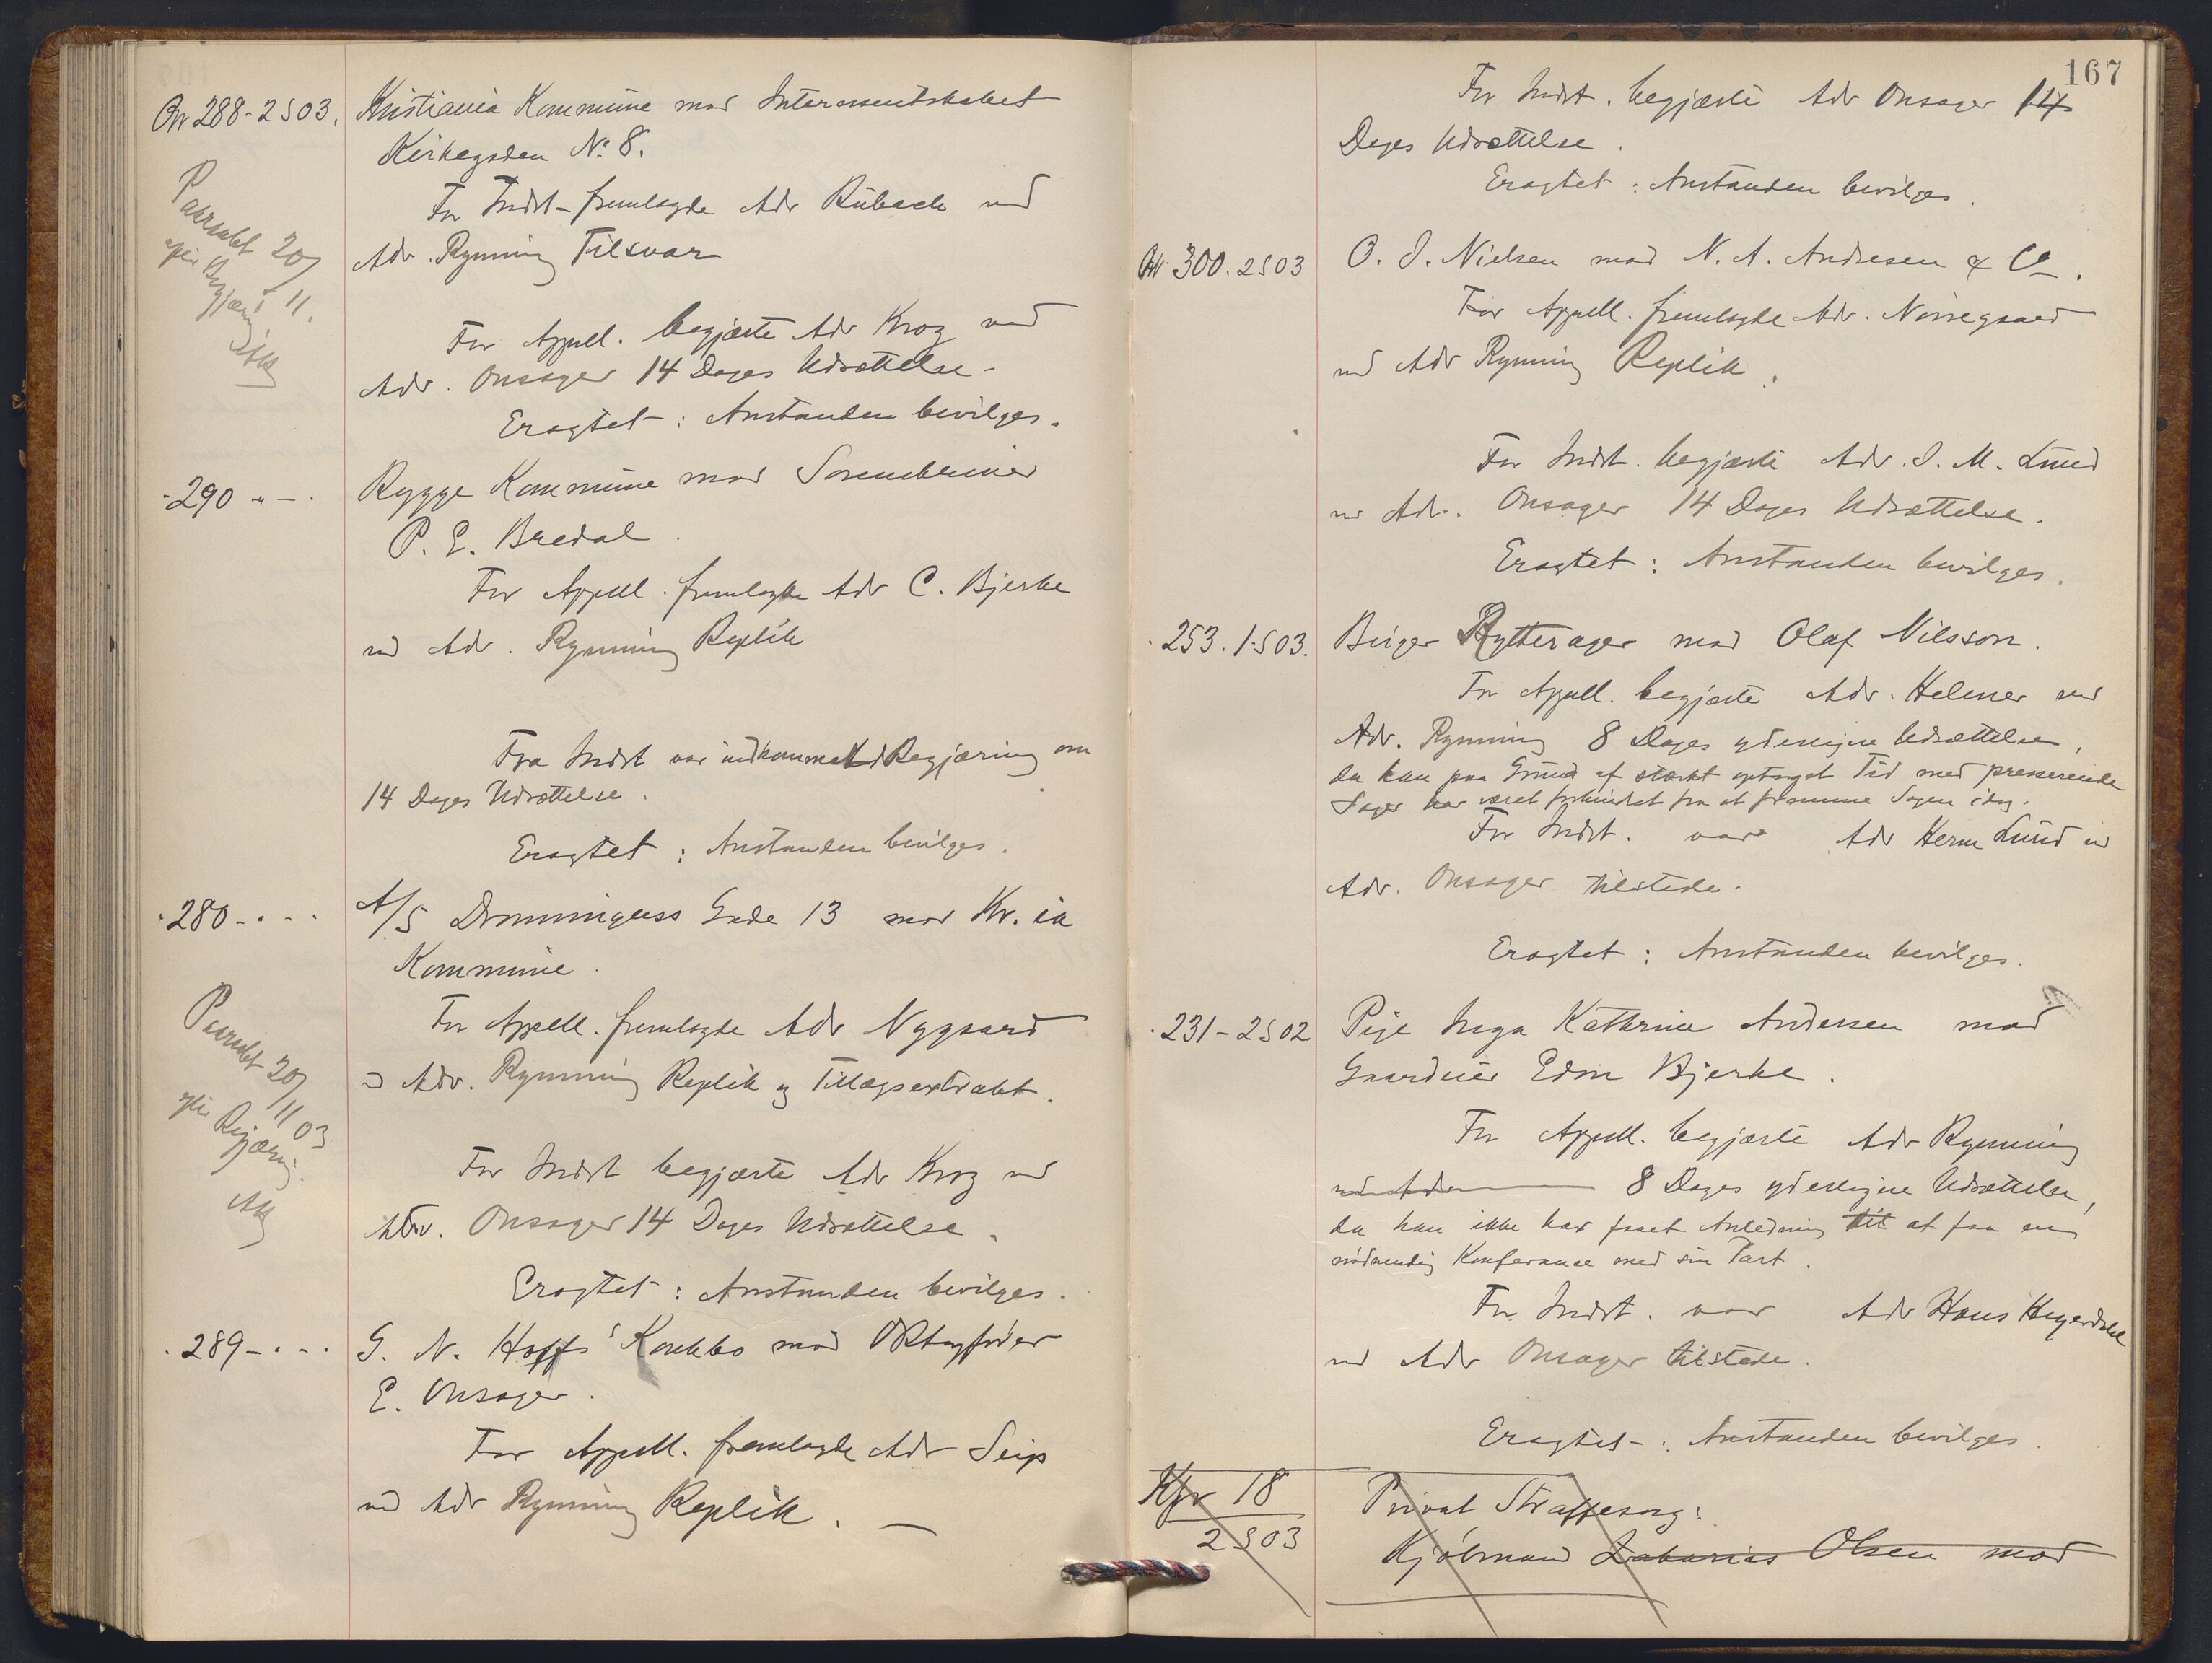 No 288-2 S 03.
Kristiania Kommune mod Interessentskabet
Kirkegaden No 8.
For Indst. fremlagde Adv Rubach ved
Adv. Rynning Tilsvar
Paaraabt 20/11.
efter Begjæring
For Appell. begjærte Adv Krog ved
Adv. Onsager 14 Dages Udsættelse.
Eragtet: Anstanden bevilges.
-290 " - .
Rygge Kommune mod Sorenskriver
P. E. Bredal.
For Appell. fremlagde Adv C. Bjerke
ved Adv. Rynning Replik
Fra Indst var indkommet Begjæring om
14 Dages Udsættelse.
Eragtet: Anstanden bevilges.
-280 - . - .
A/S Dronningens Gade 13 mod Kr.ia
Kommune.
For Appell. fremlagde Adv Nygaard
ved Adv. Rynning Replik og Tillægsextrakt.
Paaraabt 20/11 03
efter Begjæring.
For Indst begjærte Adv Krog ved
Adv. Onsager 14 Dages Udsættelse.
Eragtet: Anstanden bevilges.
. 289 - . - .
G. N. Hoffs Konkbo mod O.R.sagfører
E. Onsager.
For Appell. fremlagde Adv Seip
ved Adv Rynning Replik. —
167
For Indst. begjærte Adv Onsager 14
Dages Udsættelse.
Eragtet: Anstanden bevilges.
No 300. 2 S 03
O. J. Nielsen mod N. A. Andresen & Co.
For Appell. fremlagde Adv. Nørregaard
ved Adv Rynning Replik.
For Indst. begjærte Adv. J. M. Lund
ved Adv. Onsager 14 Dages Udsættelse.
Eragtet: Anstanden bevilges.
. 253. 1 S 03.
Birger Rytterager mod Olaf Nilsson.
For Appell. begjærte Adv. Helmer ved
Adv. Rynning 8 Dages yderligere Udsættelse,
da han paa Grund af stærkt optaget Tid med presserende
Sager har været forhindret fra at fremme Sagen idag.
For Indst. var Adv Herm Lund ved
Adv. Onsager tilstede.
Eragtet: Anstanden bevilges.
. 231-2 S 02
Pige Inga Kathrine Andersen mod
Gaardeier Edvin Bjerke.
For Appell. begjærte Adv Rynning
ved Adv 8 Dages yderligere Udsættelse,
da han ikke har faaet Anledning til at faa en
nødvendig Konferance med sin Part.
For Indst. var Adv Hans Heyerdahl
ved Adv Onsager tilstede.
Eragtet: Anstanden bevilges.
Kfr 18
2 S 03
Privat Straffesag:
Kjøbmand Zakarias Olsen mod